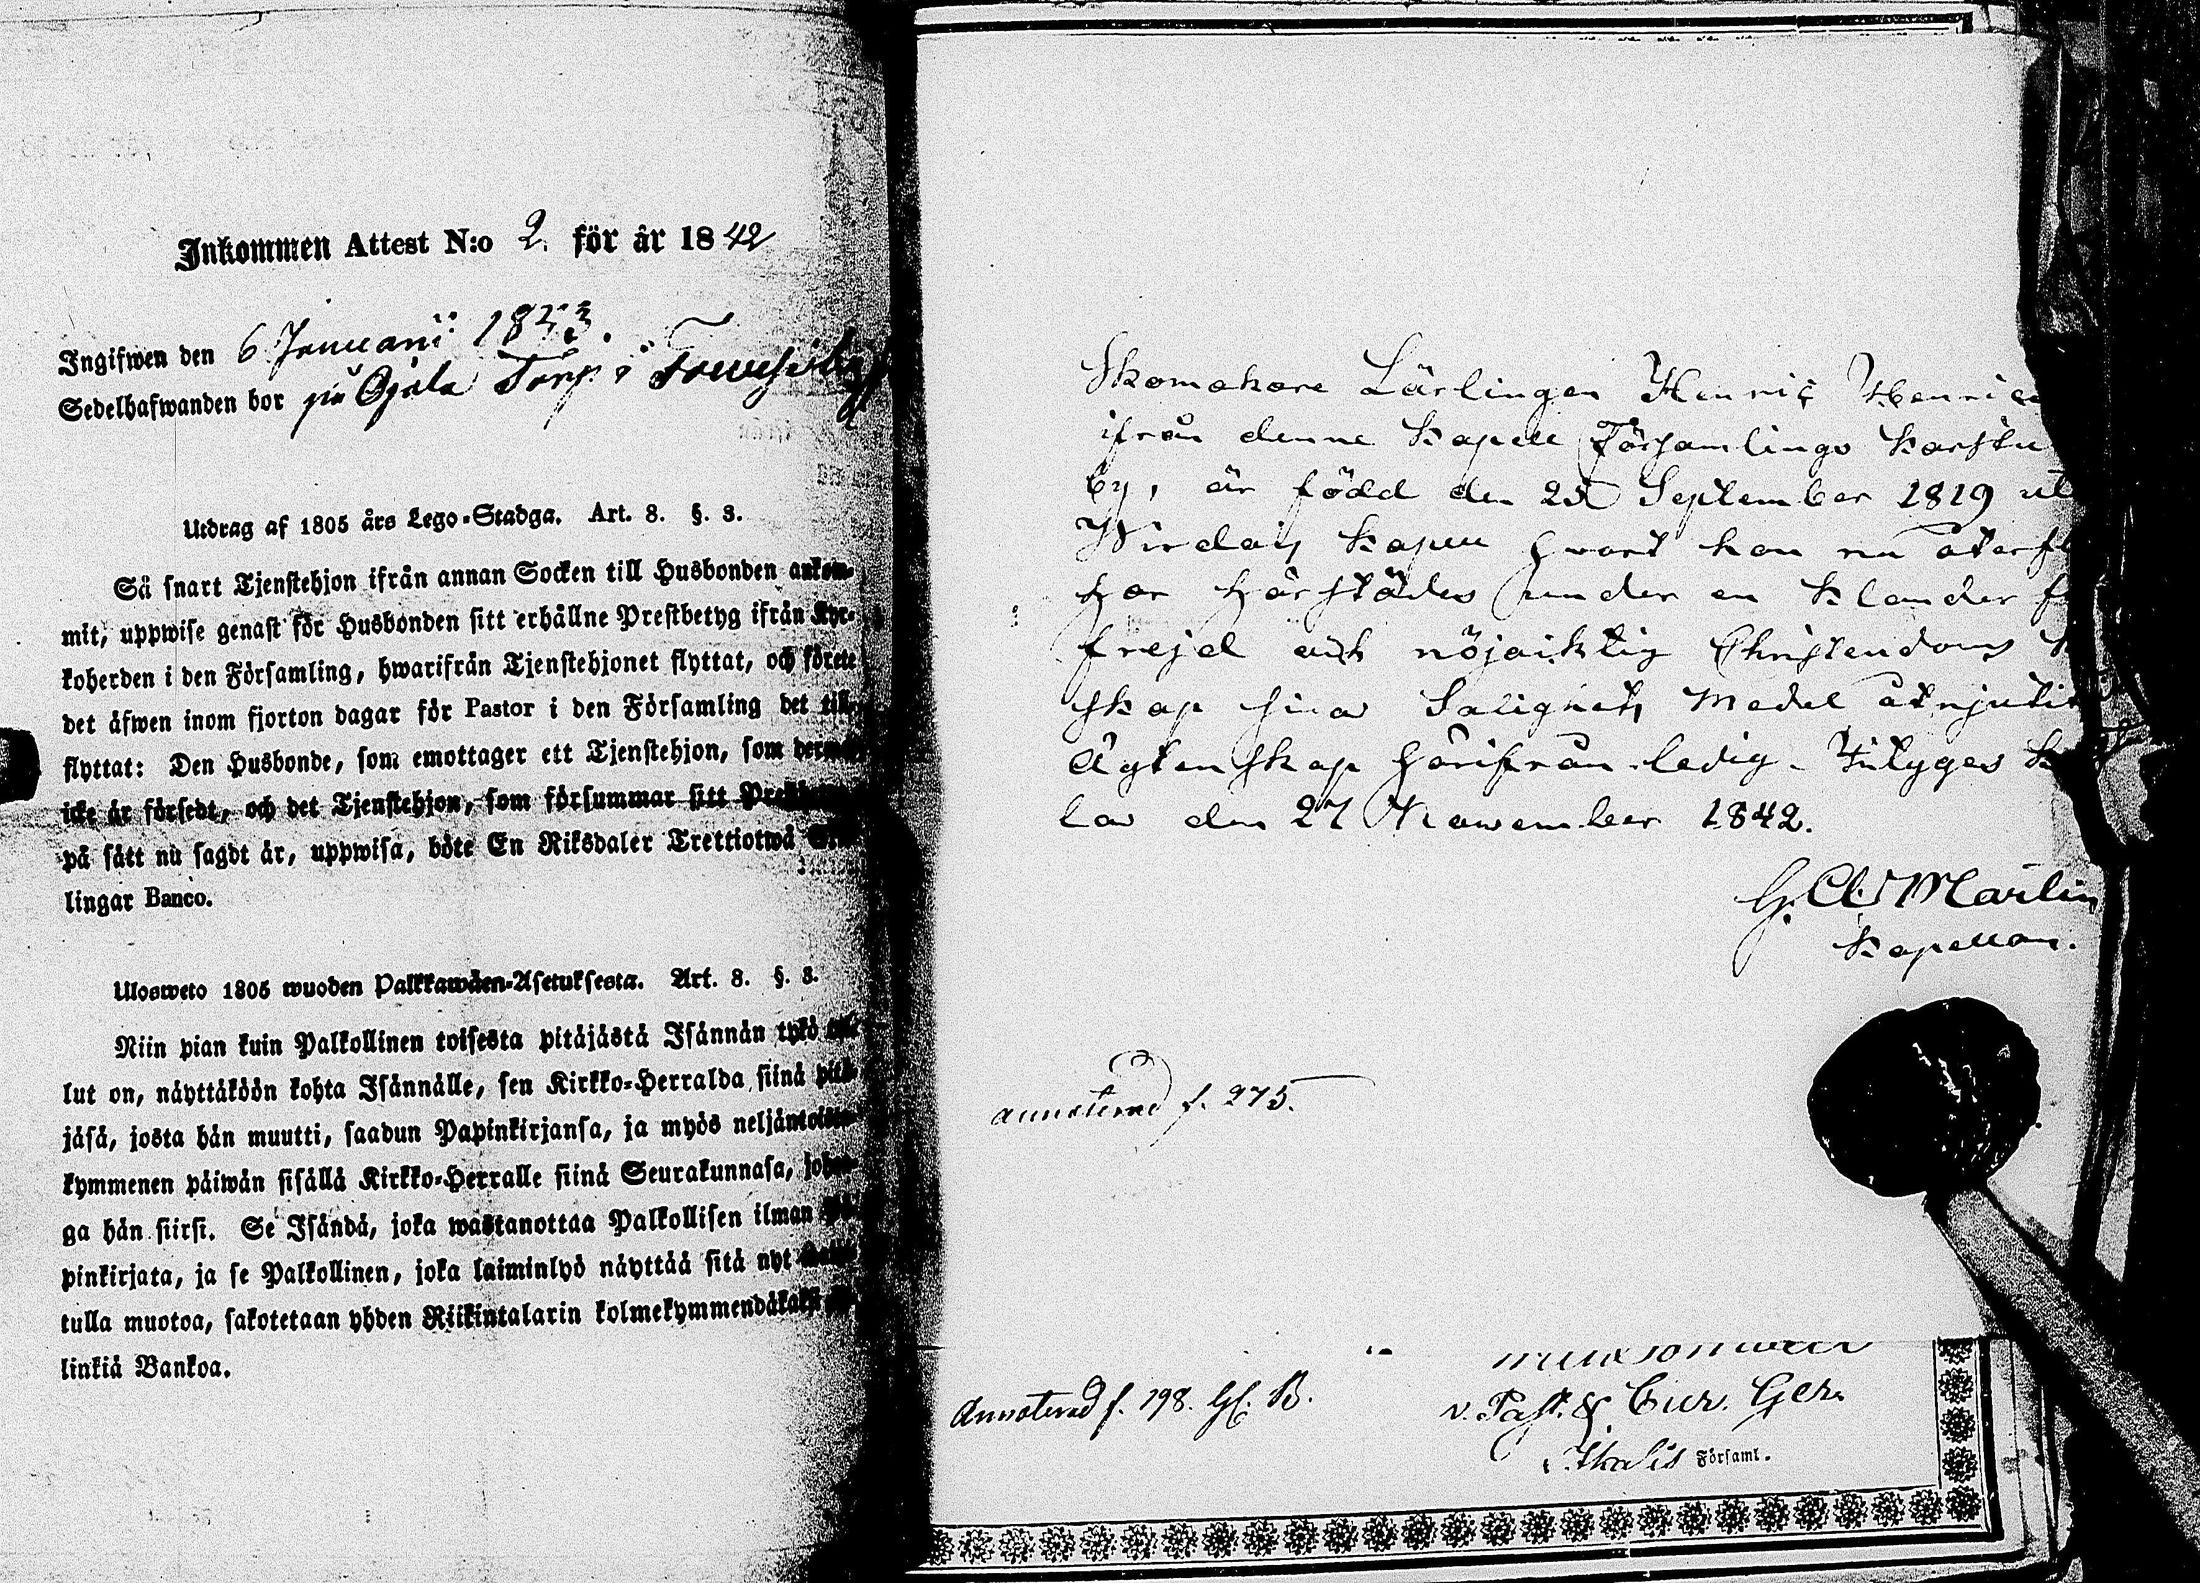 Inkommen Attest N:o 2. för år 1842
Ingifwen den 6 Januarii 1843.
Sedelhafwanden bor på Ojala Torp i
Utdrag af 1805 års Lego-Stadga. Art. 8. §. 3.
Så snart Tjenstehjon ifrån annan Socken till Husbonden ankom-
mit, uppwise genast för Husbonden sitt erhållne Prestbetyg ifrån Kyr-
koherden i den Församling, hwarifrån Tjenstehjonet flyttat, och förete
det äfwen inom fjorton dagar för Pastor i den Församling det till
flyttat: Den Husbonde, som emottager ett Tjenstehjon, som dermed
icke är försedt, och det Tjenstehjon, som försummar sitt
på sätt nu sagdt är, uppwisa, böte En Riksdaler Trettiotwå
lingar Banco.
Ulosweto 1805 wuoden Palkkawäen-Asetuksesta. Art. 8. §. 3.
Niin pian kuin Palkollinen toisesta pitäjästä Isännän tykö
lut on, näyttäköön kohta Isännälle, sen Kirkko-Herralda siinä pitä-
jäsä, josta hän muutti, saadun Papinkirjansa, ja myös neljäntoista-
kymmenen päiwän sisällä Kirkko-Herralle siinä Seurakunnasa, johon-
ga hän siirsi. Se Isändä, joka wastanottaa Palkollisen ilman Pa-
pinkirjata, ja se Palkollinen, joka laiminlyö näyttää sitä nyt
tulla muotoa, sakotetaan yhden Riikintalarin kolmekymmendäkaksi
linkiä Bankoa.
Skomakare Lärlingen Henric
ifrån denne Kapell Församlings Karstu
by, är född den 25 September 1819 uti
Wirdois Kapell hwart han nu återfl
har härstädes under en klander f
frejd och nöjacktig Christendoms k
skap sina Salighets Medel åtnjutit
Ägtenskap härifrån ledig. Betygas
la den 27 November 1842.
Kapellan.
annoterad f. 275.
Annoterad f. 198.
v. Past. & Cur. Ger.
i Ikalis Församl.